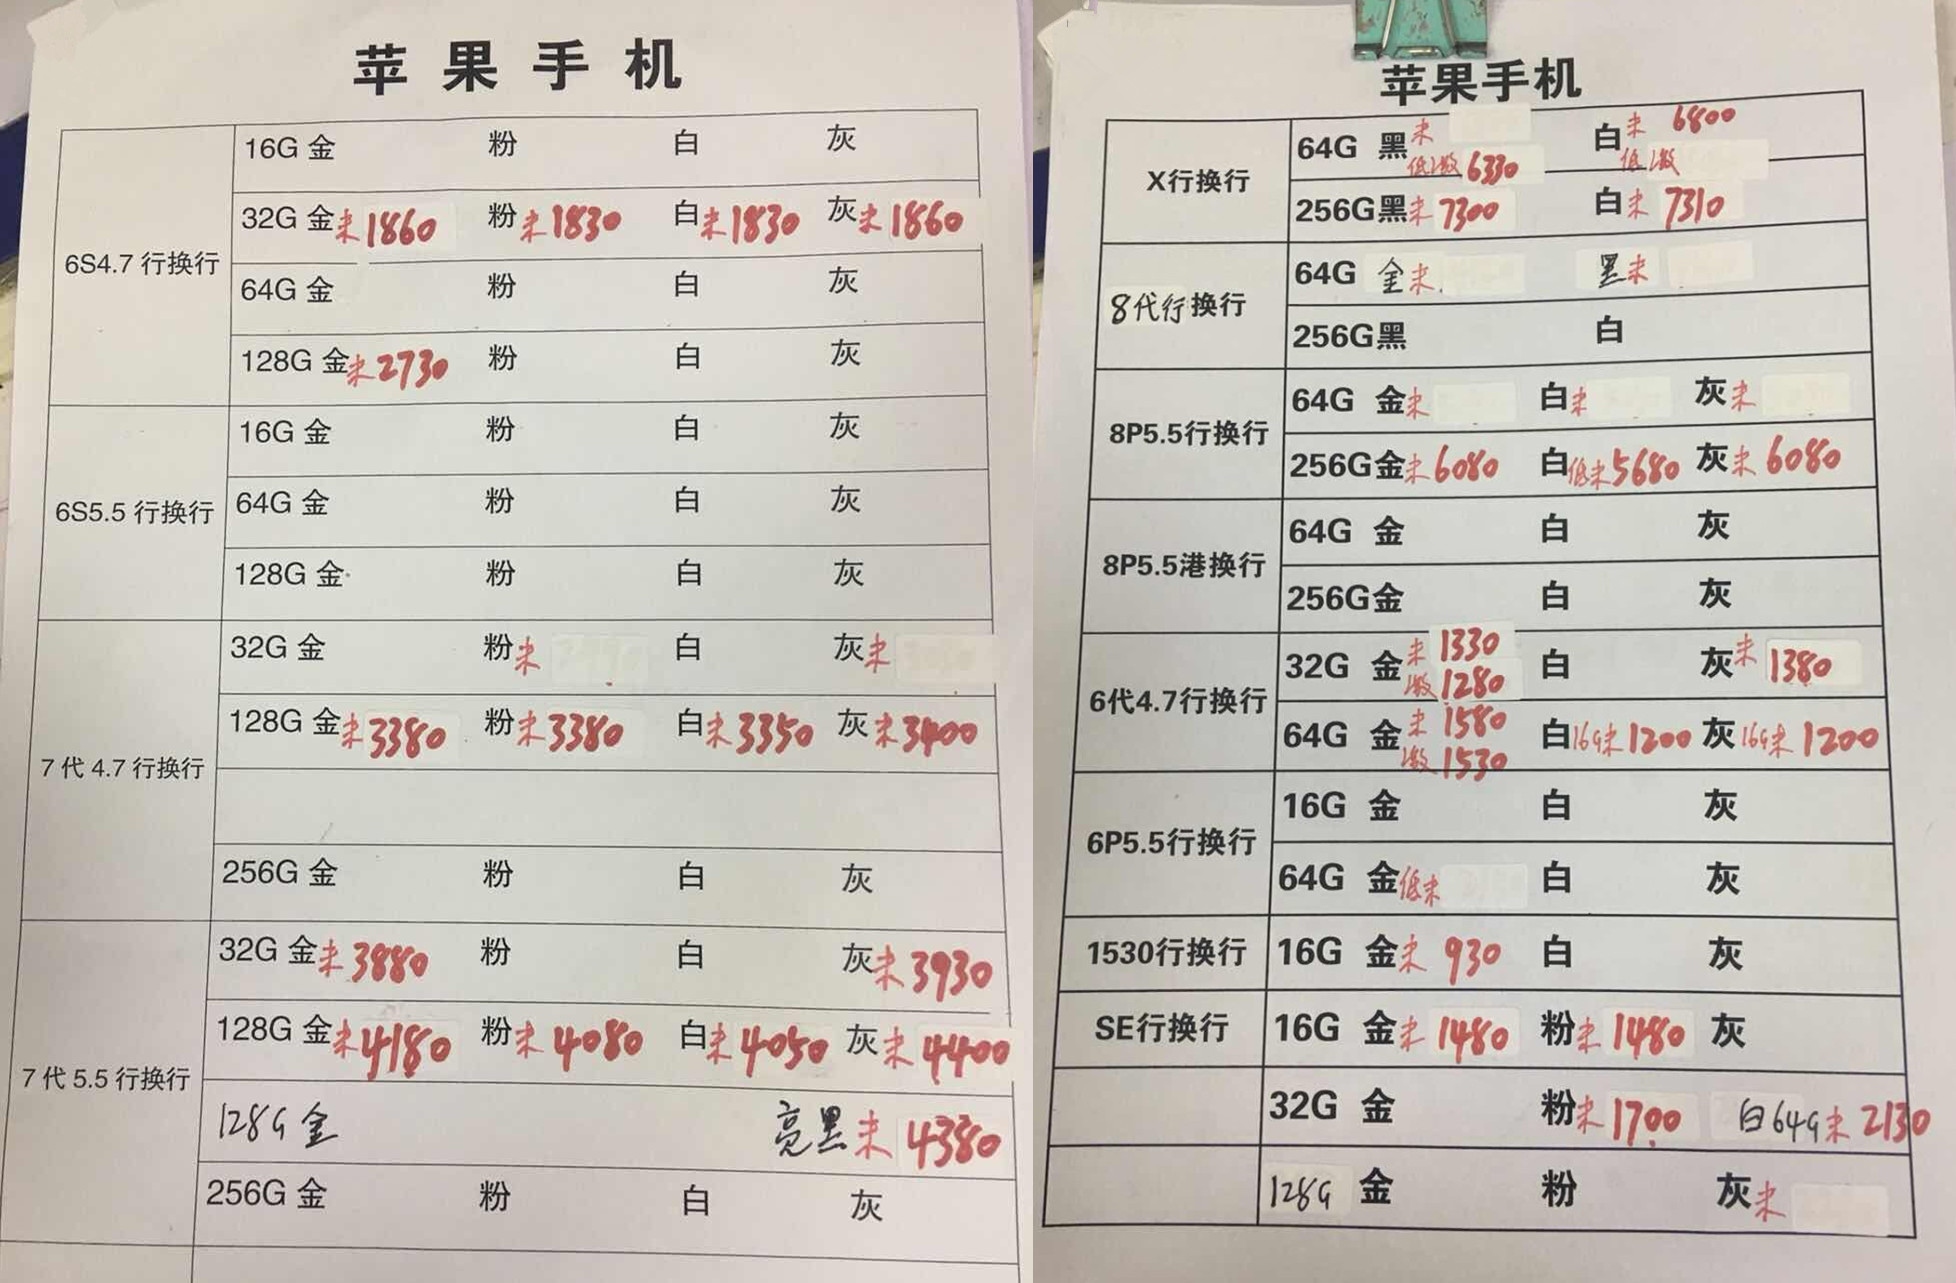 苹果手机
16G 金 粉 白 灰
6S4.7 行换行
32G 金 未 1860 粉 未 1830 白 未 1830 灰 未 1860
64G 金 粉 白 灰
128G 金 未 2730 粉 白 灰
6S5.5 行换行
16G 金 粉 白 灰
64G 金 粉 白 灰
128G 金 粉 白 灰
7代 4.7 行换行
32G 金 粉 未 白 灰 未
128G 金 未 3380 粉 未 3380 白 未 3350 灰 未 3400
256G 金 粉 白 灰
7代 5.5 行换行
32G 金 未 3880 粉 白 灰 未 3930
128G 金 未 4180 粉 未 4080 白 未 4050 灰 未 4400
128G 金 亮黑 未 4380
256G 金 粉 白 灰
苹果手机
X行换行
64G 黑 未 白 未 6800
低激 6330 低激
256G黑 未 7300 白 未 7310
8代行换行
64G 金 未 黑 未
256G黑 白
8P5.5行换行
64G 金 未 白 未 灰 未
256G金 未 6080 白 低未 5680 灰 未 6080
8P5.5港换行
64G 金 白 灰
256G金 白 灰
6代4.7行换行
32G 金 未 1330 白 灰 未 1380
激 1280
64G 金 未 1580 白 16G未 1200 灰 16G未 1200
激 1530
6P5.5行换行
16G 金 白 灰
64G 金 低未 白 灰
1530行换行 16G 金 未 930 白 灰
SE行换行 16G 金 未 1480 粉 未 1480 灰
32G 金 粉 未 1700 白64G 未 2130
128G 金 粉 灰 未